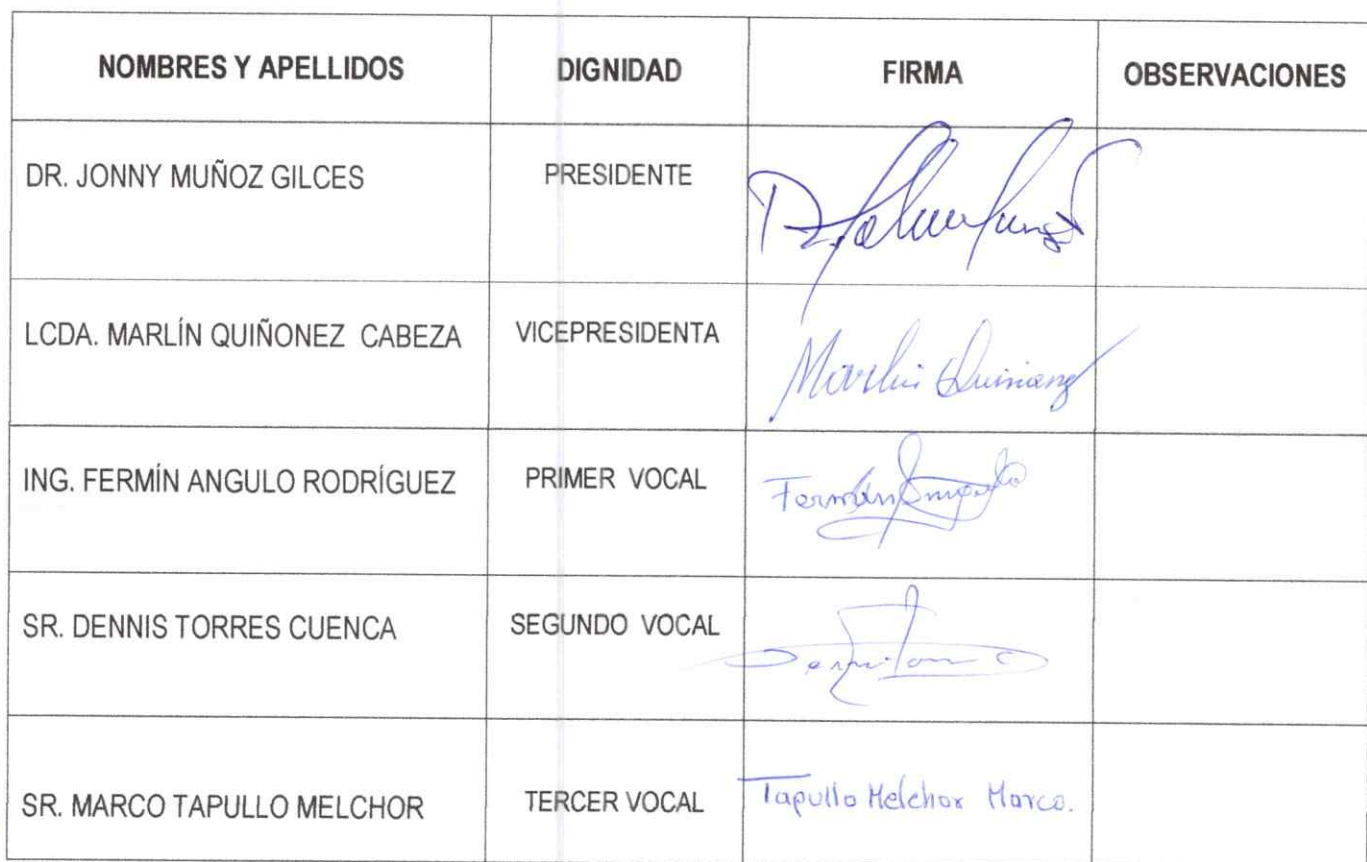 NOMBRES Y APELLIDOS DIGNIDAD FIRMA OBSERVACIONES
DR. JONNY MUÑOZ GILCES PRESIDENTE
LCDA. MARLÍN QUIÑONEZ CABEZA VICEPRESIDENTA Marlin Quiñonez
ING. FERMÍN ANGULO RODRÍGUEZ PRIMER VOCAL Fermín Angulo
SR. DENNIS TORRES CUENCA SEGUNDO VOCAL
SR. MARCO TAPULLO MELCHOR TERCER VOCAL Tapullo Melchor Marco.